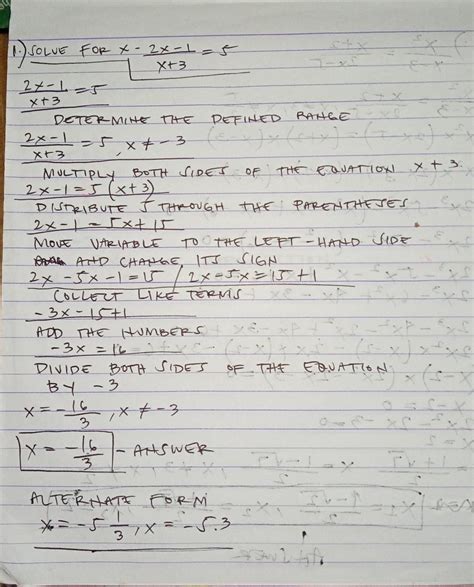 1.) SOLVE FOR X - 2x-1/x+3 = 5
2x-1/x+3 = 5
DETERMINE THE DEFINED RANGE
2x-1/x+3 = 5, x ≠ -3
MULTIPLY BOTH SIDES OF THE EQUATION X + 3
2x-1 = 5 (x+3)
DISTRIBUTE 5 THROUGH THE PARENTHESES
2x-1 = 5x+15
MOVE VARIABLE TO THE LEFT-HAND SIDE
AND CHANGE ITS SIGN
2x-5x-1=15 / 2x-5x=15+1
COLLECT LIKE TERMS
-3x-15+1
ADD THE NUMBERS
-3x = 16
DIVIDE BOTH SIDES OF THE EQUATION
BY -3
x = -16/3, x ≠ -3
x = -16/3 - ANSWER
ALTERNATE FORM
x = -5 1/3, x = -5.3